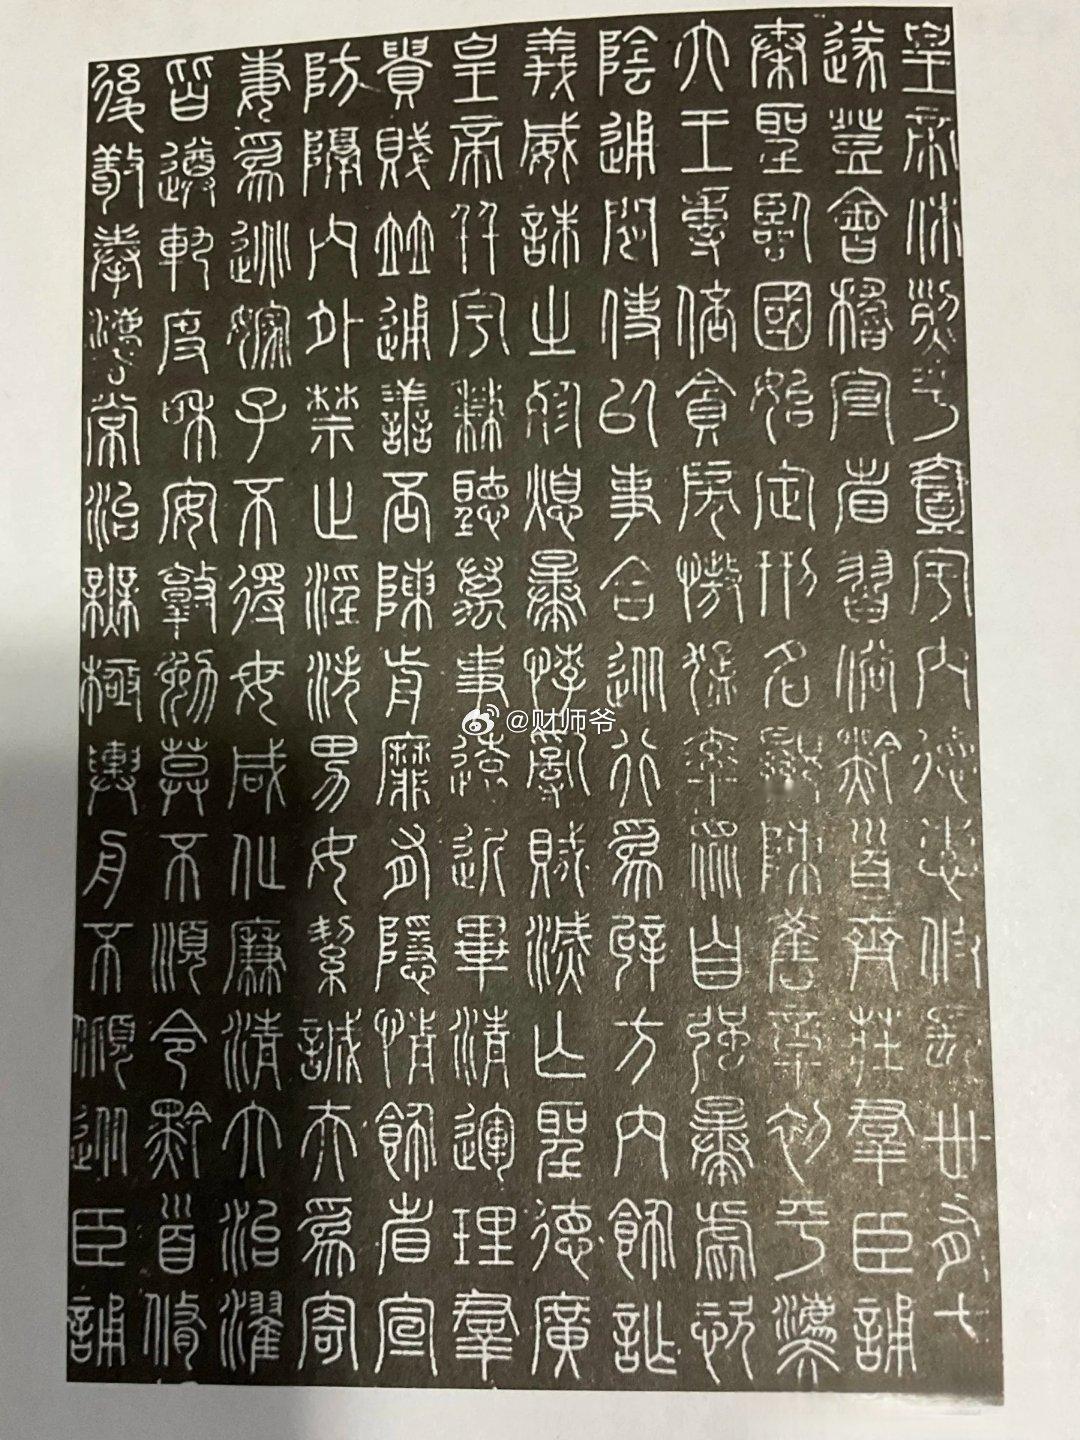 皇帝休烈平壹宇內德惠攸長卅有七
遂登會稽宣省習俗黔首齊莊羣臣誦
秦聖臨國始定刑名顯陳舊章初平灋
六王專倍貪戾慠猛率眾自強暴虐恣
陰通閒使以事合從行爲辟方內飾詐
義威誅之殄熄暴悖亂賊滅亡聖德廣
皇帝并宇兼聽萬事遠近畢清運理羣
貴賤並通善否陳前靡有隱情飾省宣
防隔內外禁止淫泆男女絜誠夫爲寄
妻爲逃嫁子不得母咸化廉清大治濯
皆遵軌度和安敦勉莫不順令黔首脩
後敬奉灋常治無極輿舟不傾從臣誦
@财师爷